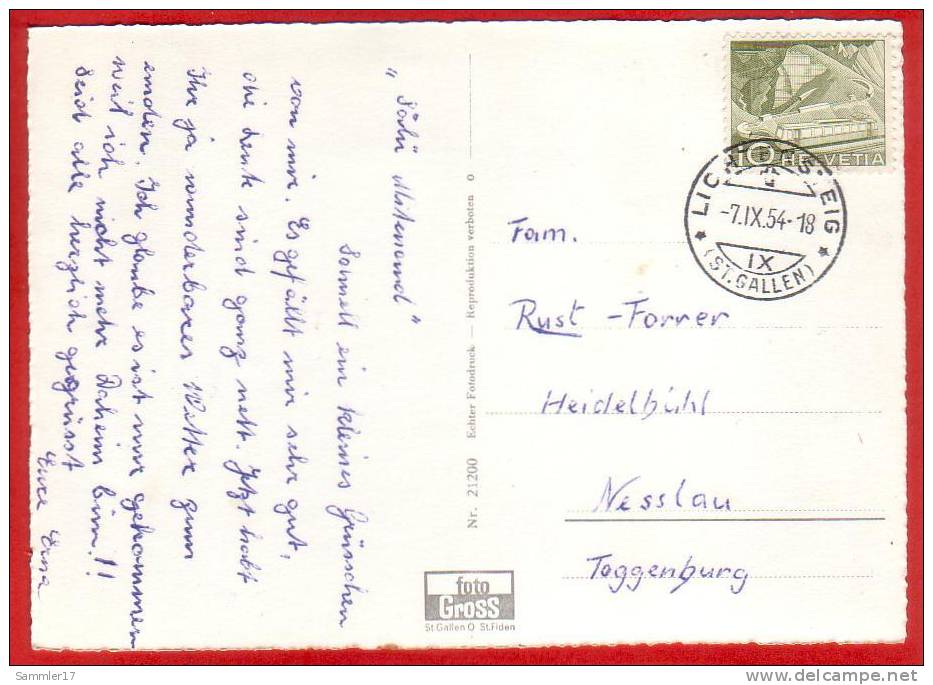 "Sali Miteinand"
Schnell ein kleines Grüsschen
von mir. Es gefällt mir sehr gut,
die Leute sind ganz nett. Jetzt habt
Ihr ja wunderbares Wetter zum
emden. Ich glaube es ist nur gekommen
weil ich nicht mehr Daheim bin!!
Seid alle herzlich gegrüsst
Eure Erna
Nr. 21200 Echter Fotodruck — Reproduktion verboten O
foto
GROSS
St.Gallen O St.Fiden
10 HELVETIA
LICHTENSTEIG
-7.IX.54-18
IX
(ST.GALLEN)
Fam.
Rust - Forrer
Heidelbühl
Nesslau
Toggenburg
Sammler17
delcampe.net